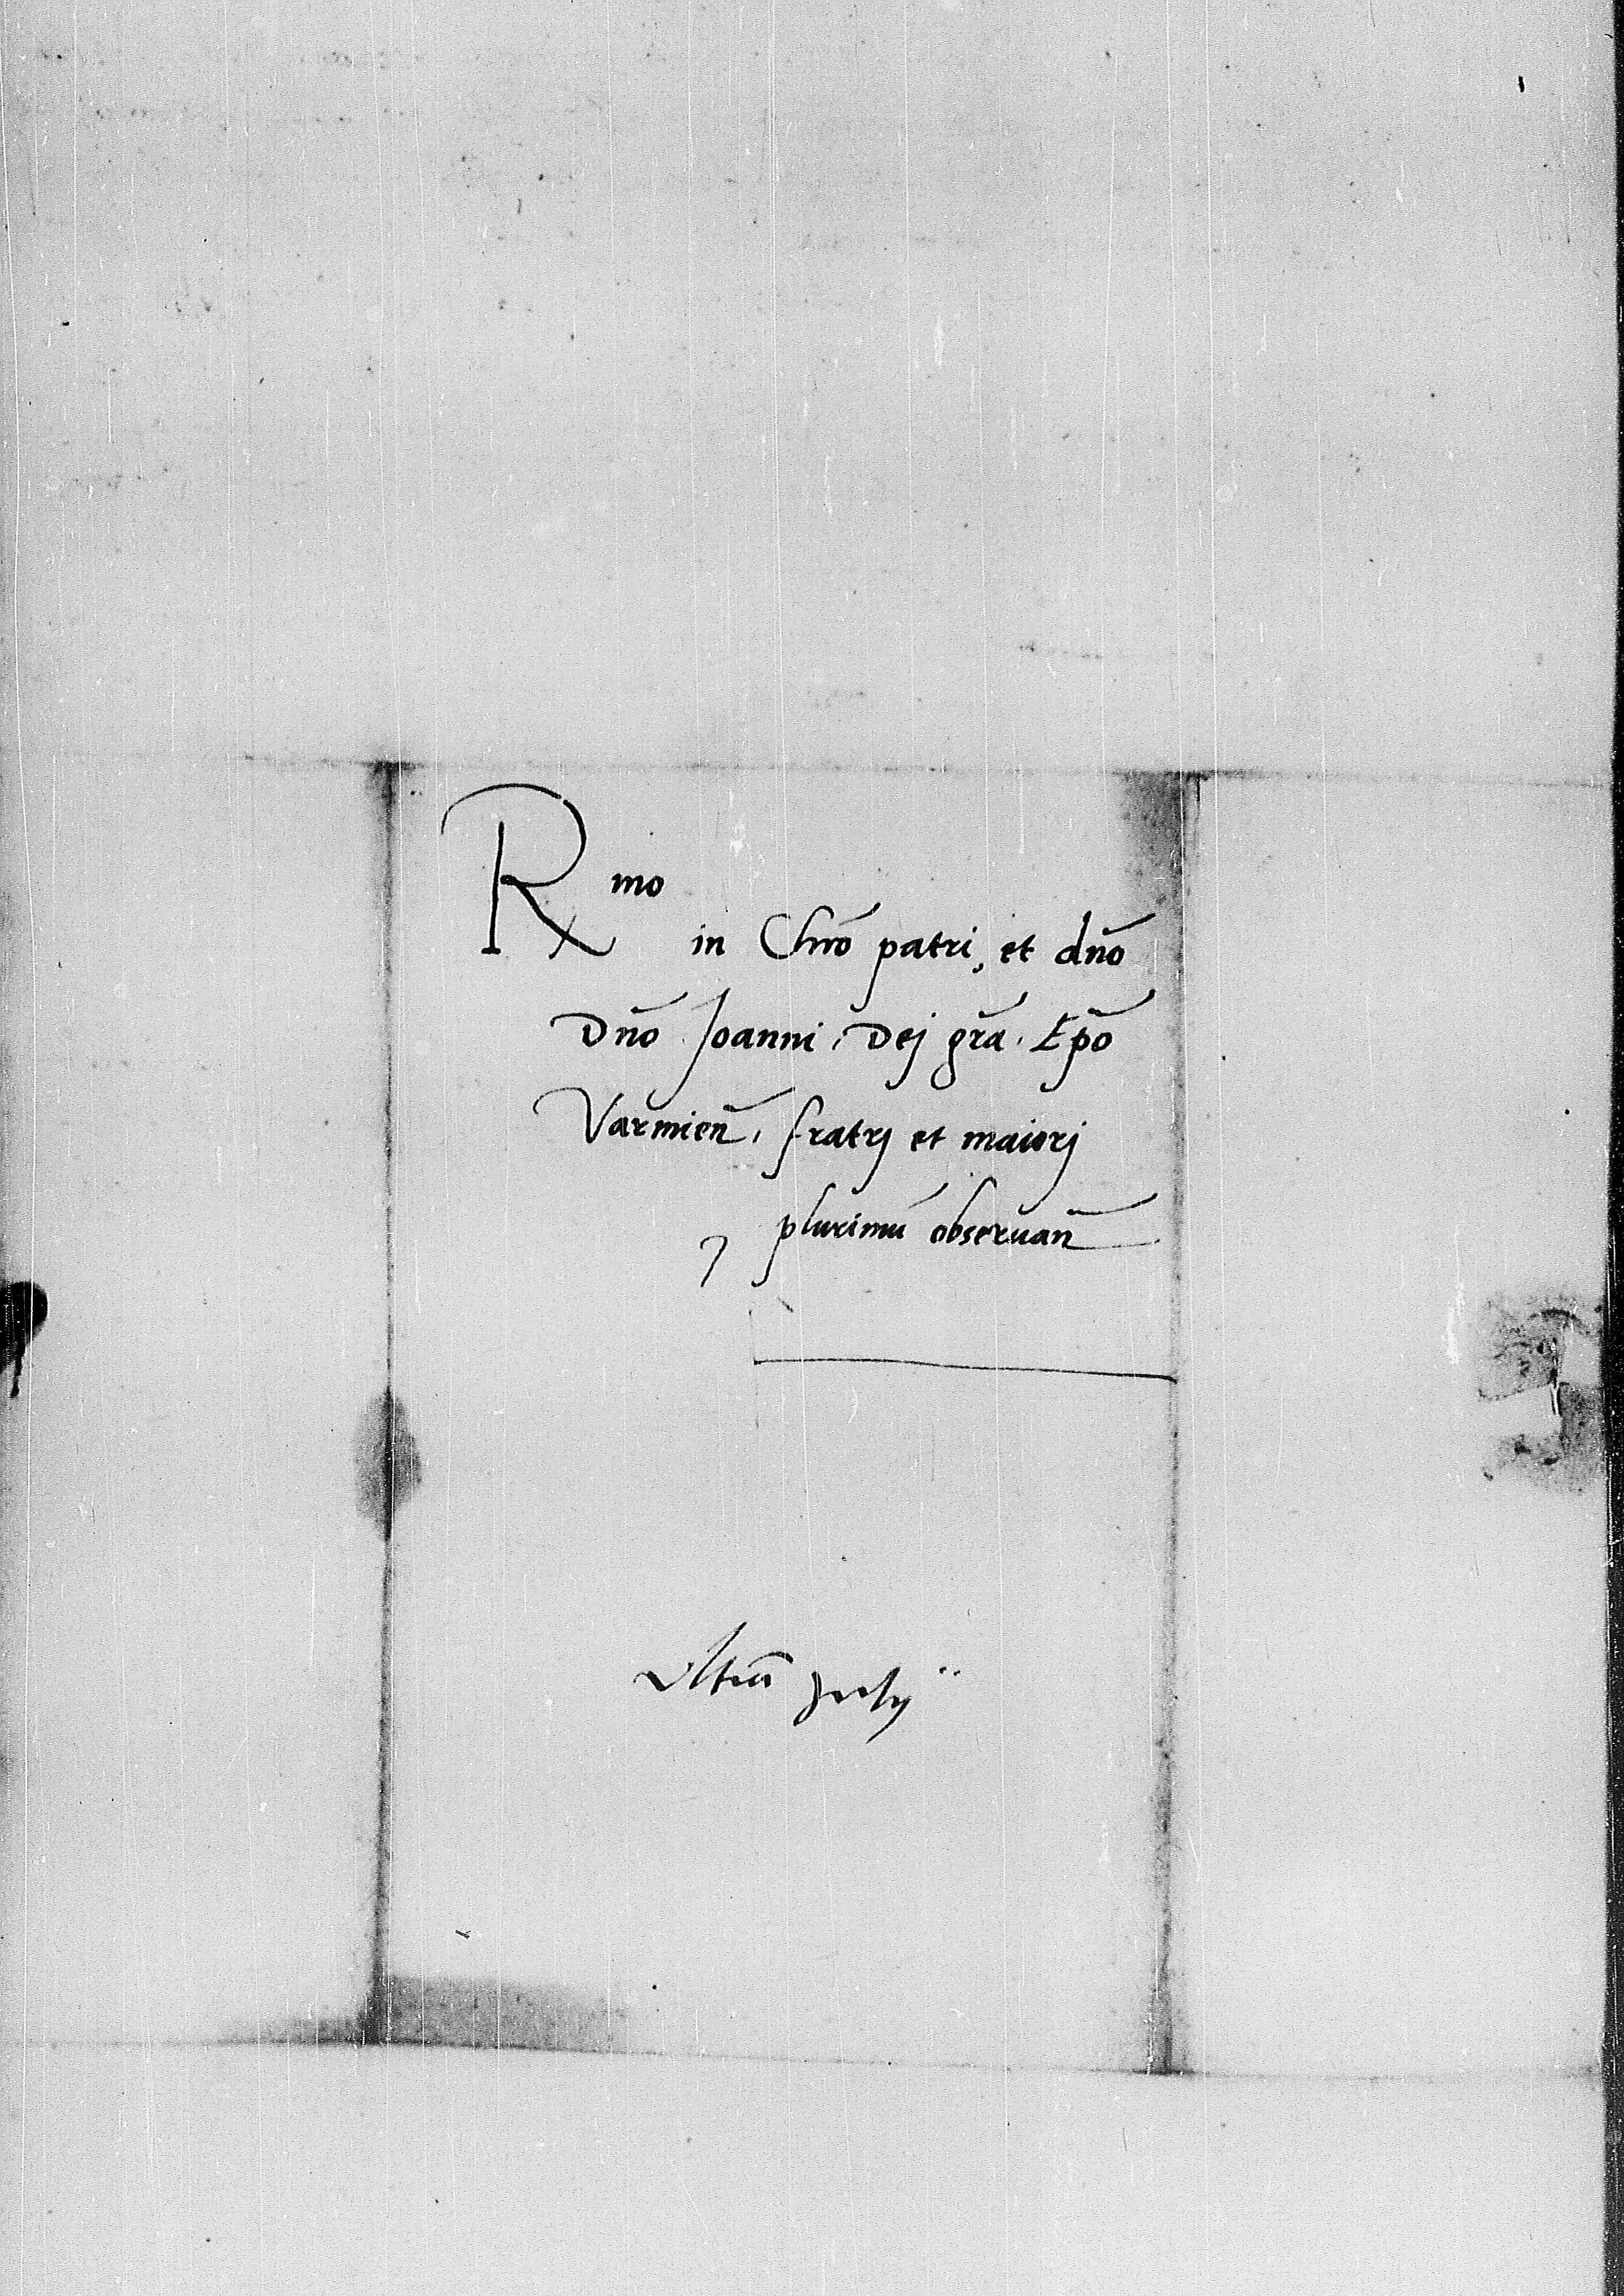 Rmo
in Chrō patri, et dn̄o
Dn̄o Joanni, Dej gr̄a, Ep̄o
Varmien̄, fratrj et maiorj
plurimū observan̄
ultīa Julij